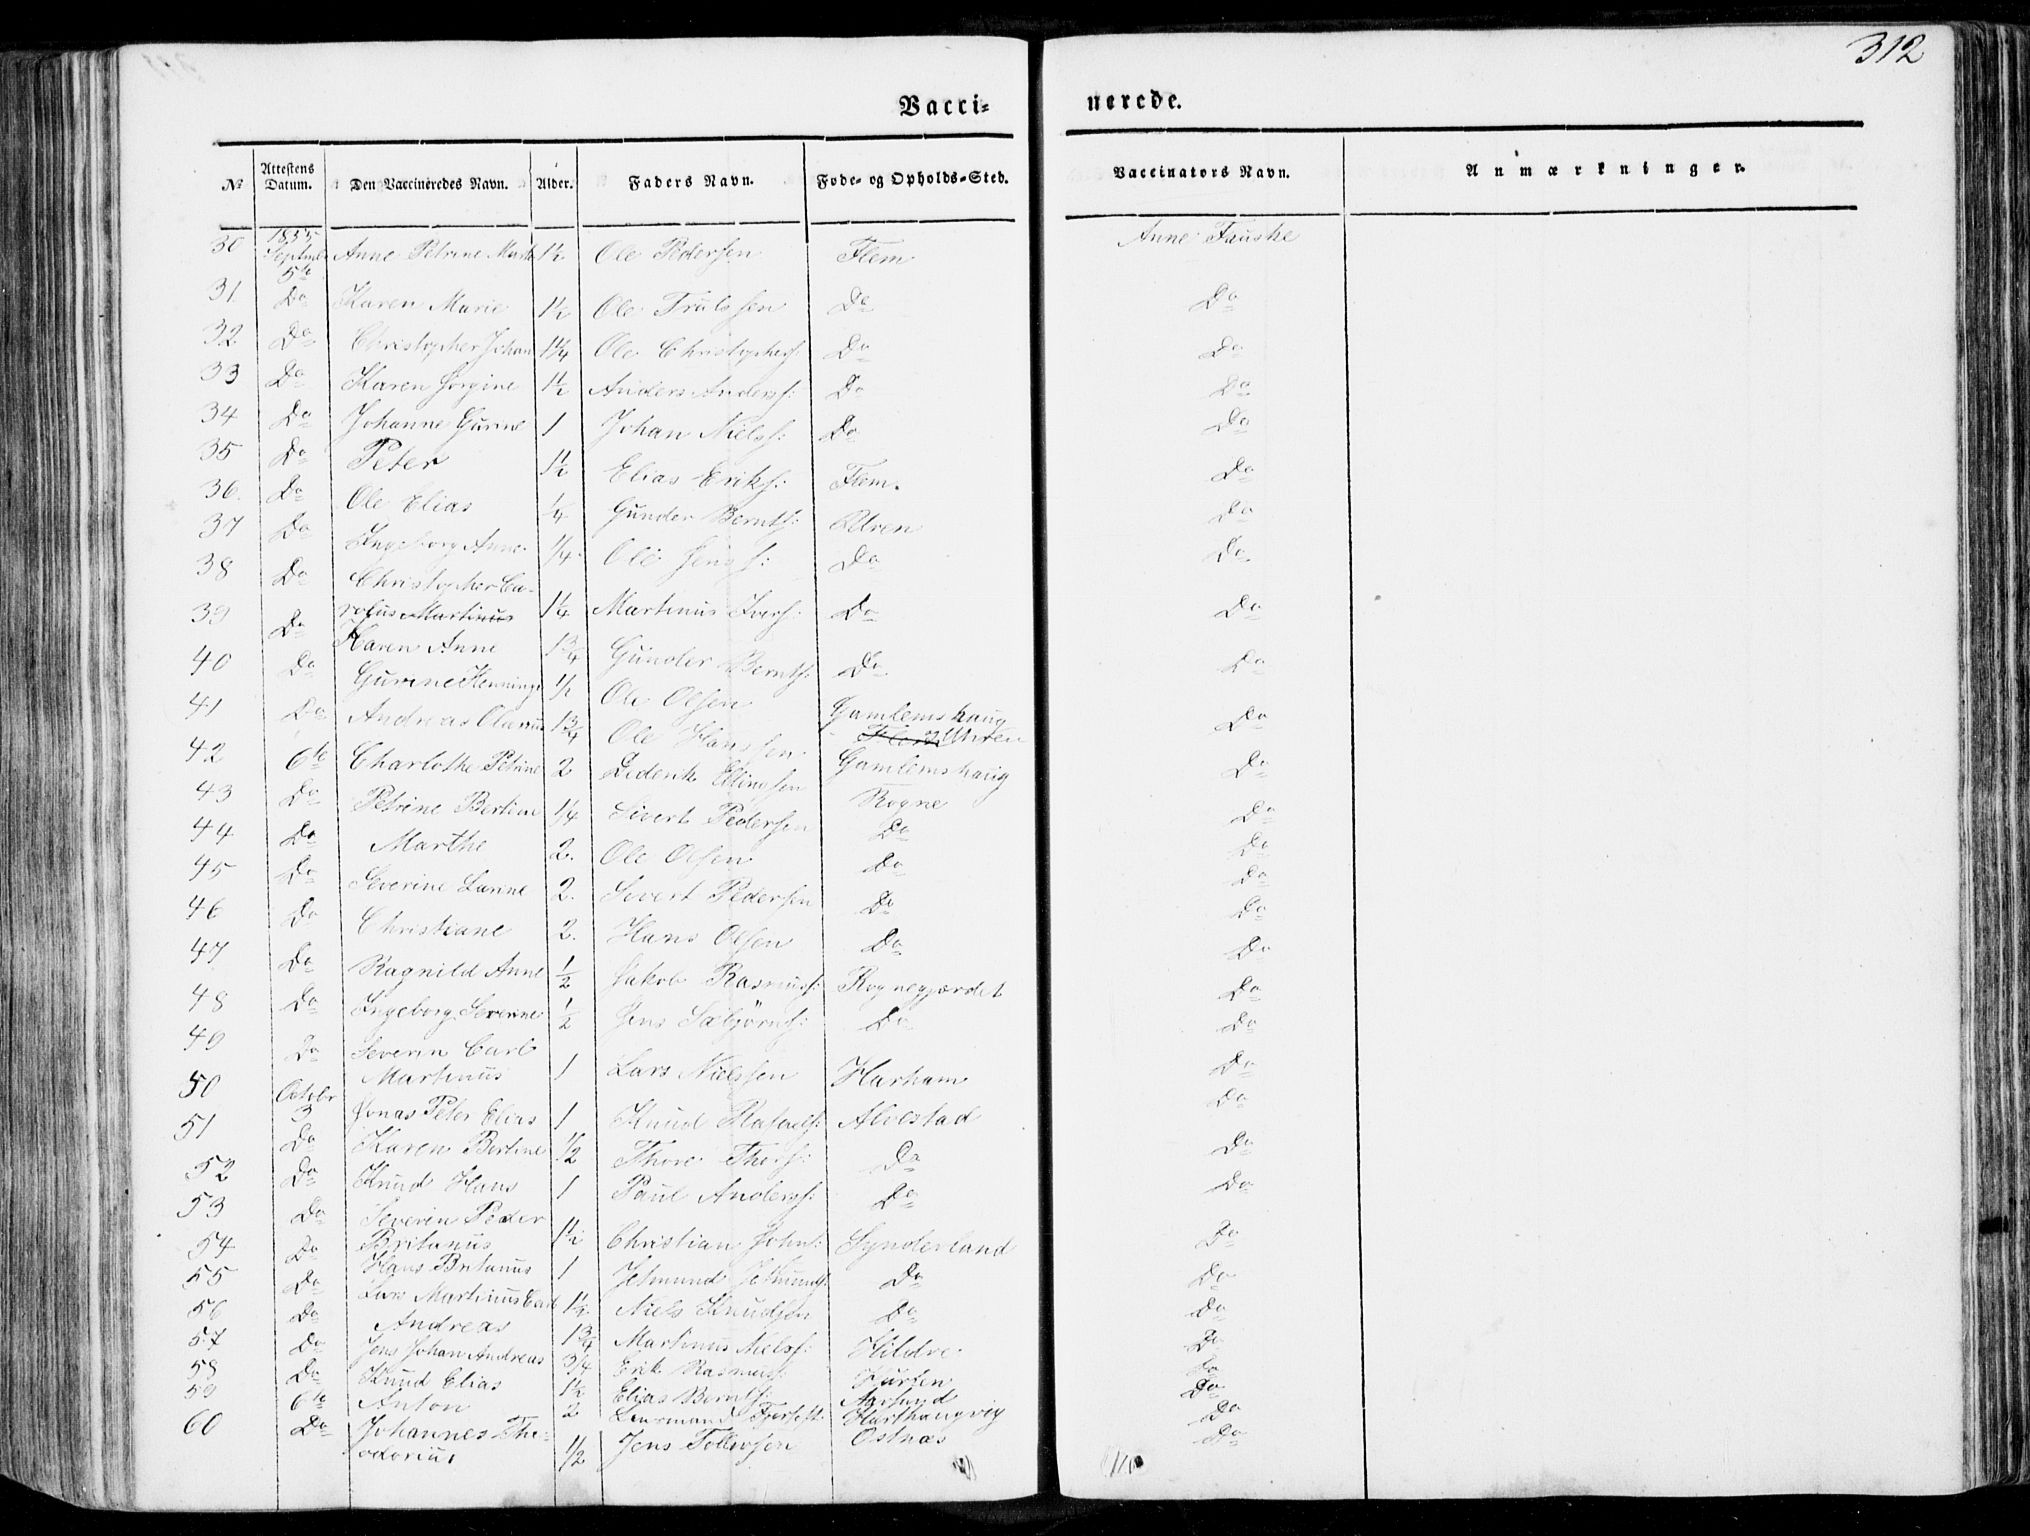 312
Vacci-
nerede.
No
Attestens Datum.
Den Vaccineredes Navn.
Alder.
Faders Navn.
Føde- og Opholds-Sted.
Vaccinators Navn.
Anmærkninger.
1855
30 Septembr 5te Anne Petrine 1½ Ole Pedersen Flem Anne Fauske
31 Do Karen Marie 1½ Ole Trulssen Do Do
32 Do Christopher Johan 1¼ Ole Christophers: Do Do
33 Do Karen Jørgine 1½ Anders Anders: Do Do
34 Do Johanne Gurine 1 Johan Niels: Do Do
35 Do Peter 1½ Elias Eriks: Flem. Do
36. Do Ole Elias ¼ Gunder Bernts: Uren Do
37 Do Ingeborg Anne ¼ Ole Jens: Do Do
38 Do Christopher Ca-
rolus Martinus 1¼ Martinus Ivers: Do Do
39 Do Karen Anne 1¾ Gunder Bernts: Do Do
40 Do Gurine Henninge ½ Ole Olsen Gamlemshaug
41 Do Andreas Olanus 1¾ Ole Hanssen Flem Uhren Do
42 6te Charlothe Petrine 2 Dederik Ellingsen Gamlemshaug Do
43 Do Petrine Bertine ¼ Sivert Pedersen Rogne Do
44 Do Marthe 2. Ole Olsen Do Do
45 Do Severine Larine 2. Sivert Pedersen Do Do
46 Do Christiane 2. Hans Olsen Do Do
47 Do Ragnild Anne ½ Jakob Rasmus: Rognegjærdet Do
48 Do Ingeborg Severine ½ Jens Sæbjørns: Do Do
49 Do Severin Carl
Martinus 1 Lars Nielssen Harham Do
50 Octobr 3 Jonas Peter Elias 1 Knud Rafaels: Alvestad Do
51 Do Karen Bertine ½ Thore Thors: Do Do
52 Do Knud Hans 1 Paul Anders: Do Do
53 Do Severin Peder
Britanus 1½ Christian Johns: Synderland Do
54 Do Hans Britanus 1 Jetmund Jetmunds: Do Do
55 Do Lars Martinus Carl 1½ Niels Knudsen Do Do
56 Do Andreas 1¾ Martinus Niels: Hildre Do
57 Do Jens Johan Andreas ¾ Erik Rasmus: Do
58 Do Knud Elias 1½ Elias Bernts: Do
59 6te Anton 2 Do
60 Do Johannes The-
odorius ½ Jens Tollevsen Østnæs Do